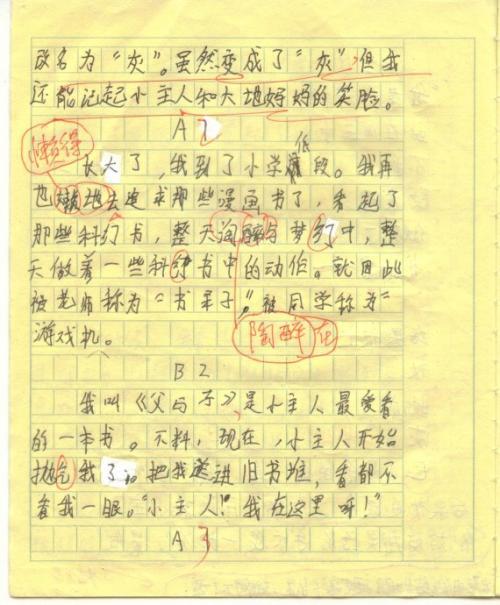 改名为“灰”。虽然变成了“灰”,但我
还能记起小主人和大地妈妈的笑脸。
A 2
懒得
长大了,我到了小学低段。我再
也懒地去追求那些漫画书了,看起了
那些科幻书,整天淘醉与梦幻中,整
天做着一些科幻书中的动作。就因此
被老师称为“书呆子”,被同学称为“
游戏机。
陶醉在
B 2
我叫《父与子》,是小主人最爱看
的一本书。不料,现在,小主人开始
抛弃我了。把我送进旧书堆,看都不
看我一眼。“小主人!我在这里呀!”
A 3